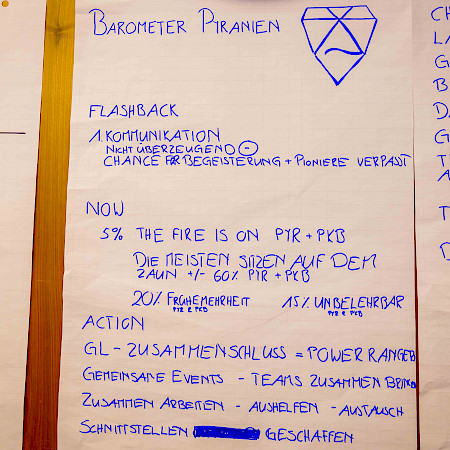 BAROMETER PYRANIEN
FLASHBACK
1. KOMMUNIKATION
NICHT ÜBERZEUGEND (-)
CHANCE FÜR BEGEISTERUNG + PIONIERE VERPASST
NOW
5% THE FIRE IS ON PYR + PKB
DIE MEISTEN SITZEN AUF DEM
ZAUN +/- 60% PYR + PKB
20% FRÜHE MEHRHEIT 15% UNBELEHRBAR
PYR & PKB PYR & PKB
ACTION
GL - ZUSAMMENSCHLUSS = POWER RANGER
GEMEINSAME EVENTS - TEAMS ZUSAMMEN
ZUSAMMEN ARBEITEN - AUSHELFEN - AUSTAUSCH
SCHNITTSTELLEN GESCHAFFEN